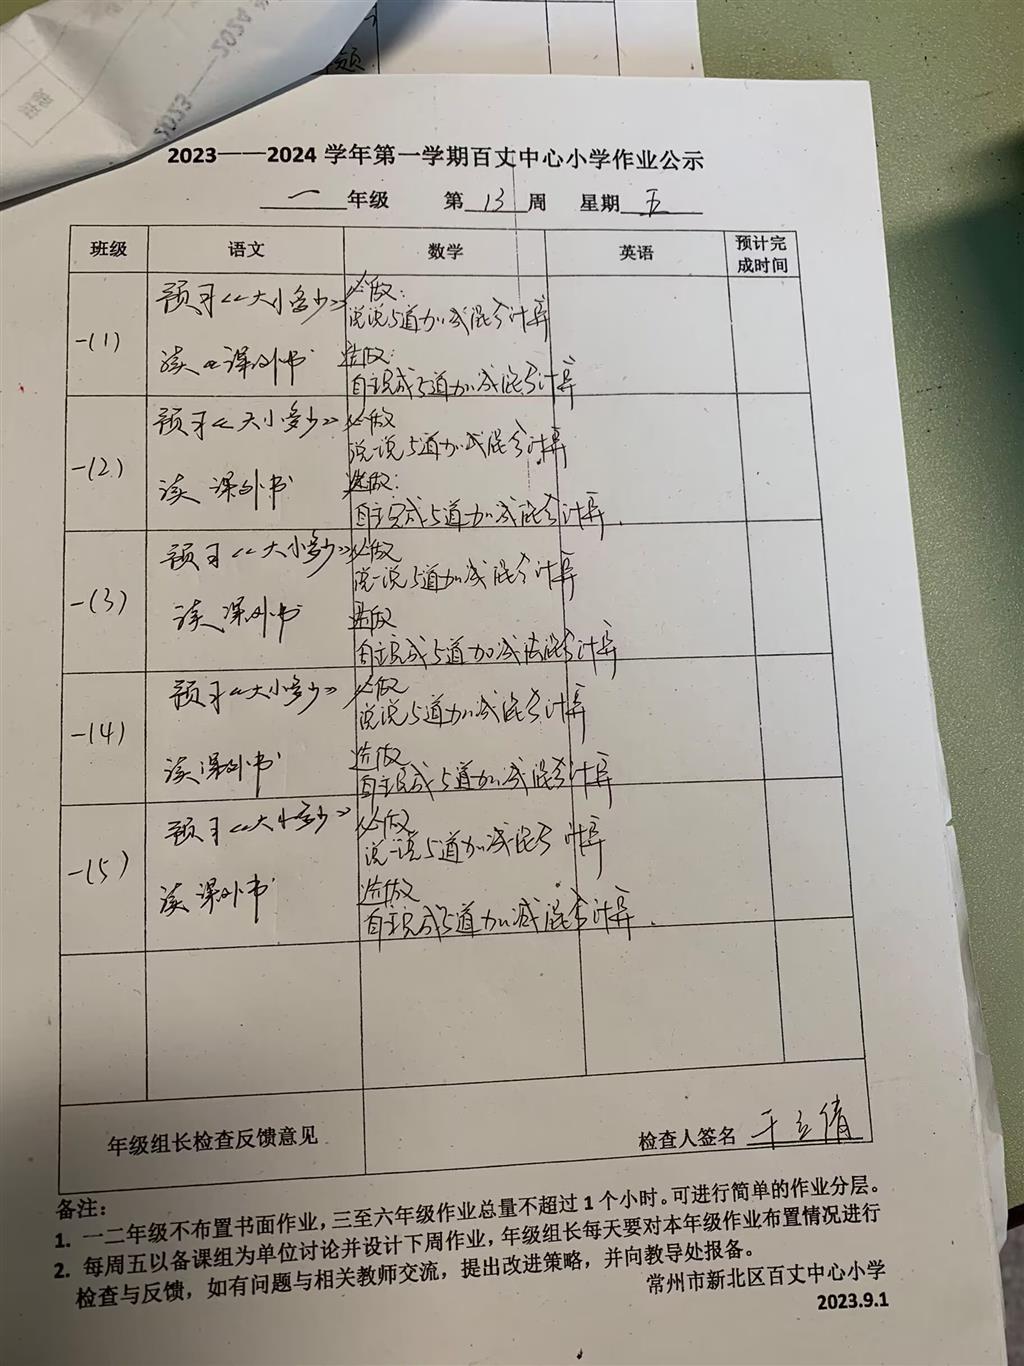 2023——2024
2023——2024 学年第一学期百丈中心小学作业公示
一 年级 第 13 周 星期 五
班级 语文 数学 英语 预计完成时间
一(1) 预习《大小多少》 必做：
说说5道加减混合计算
读 课外书 选做：
自主完成5道加减混合计算
一(2) 预习《大小多少》 必做
说一说5道加减混合计算
读 课外书 选做：
自主完成5道加减混合计算.
一(3) 预习《大小多少》 必做
说一说5道加减混合计算
读课外书 选做
自主完成5道加减法混合计算
一(4) 预习《大小多少》 必做
说说5道加减混合计算
读课外书 选做
自主完成5道加减混合计算
一(5) 预习《大小多少》 必做
说一说5道加减混合计算
读课外书 选做
自主完成5道加减混合计算.
年级组长检查反馈意见 检查人签名
备注：
1. 一二年级不布置书面作业，三至六年级作业总量不超过 1 个小时。可进行简单的作业分层。
2. 每周五以备课组为单位讨论并设计下周作业，年级组长每天要对本年级作业布置情况进行
检查与反馈，如有问题与相关教师交流，提出改进策略，并向教导处报备。
常州市新北区百丈中心小学
2023.9.1